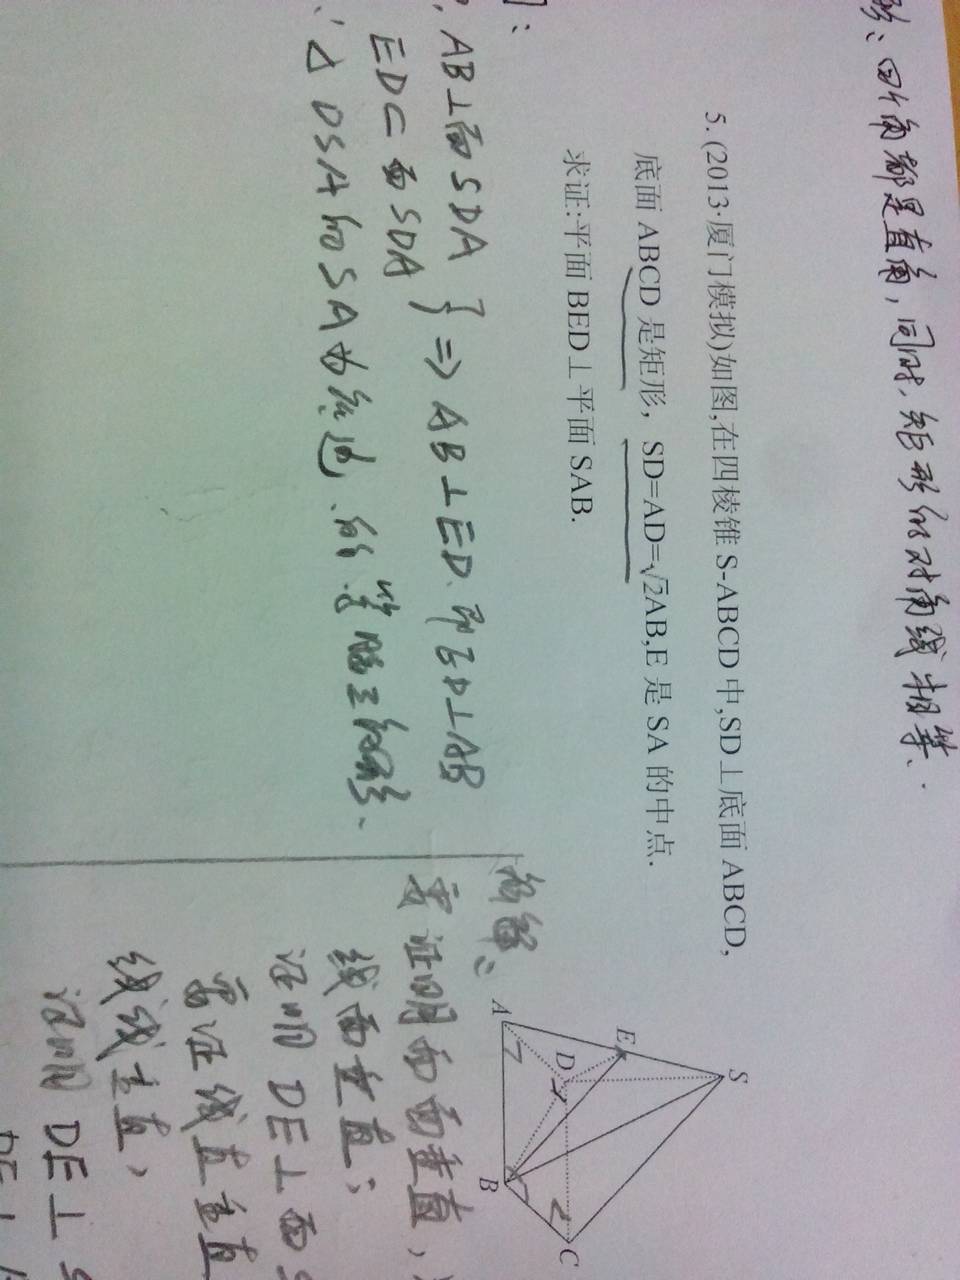 四个角都是直角,同时,矩形的对角线相等.
5.(2013·厦门模拟)如图,在四棱锥S-ABCD中,SD⊥底面ABCD,
底面ABCD是矩形, SD=AD=√2AB,E是SA的中点.
求证:平面BED⊥平面SAB.
AB⊥面SDA
ED⊂面SDA
} ⇒ AB⊥ED.即ED⊥AB
DSA 以SA为底边.的.等腰三角形.
S
E
A
D
B
C
解答:
要证明面面垂直,
线面垂直;
证明DE⊥面S
需证线直垂直
线线垂直,
证明DE⊥S
DE⊥